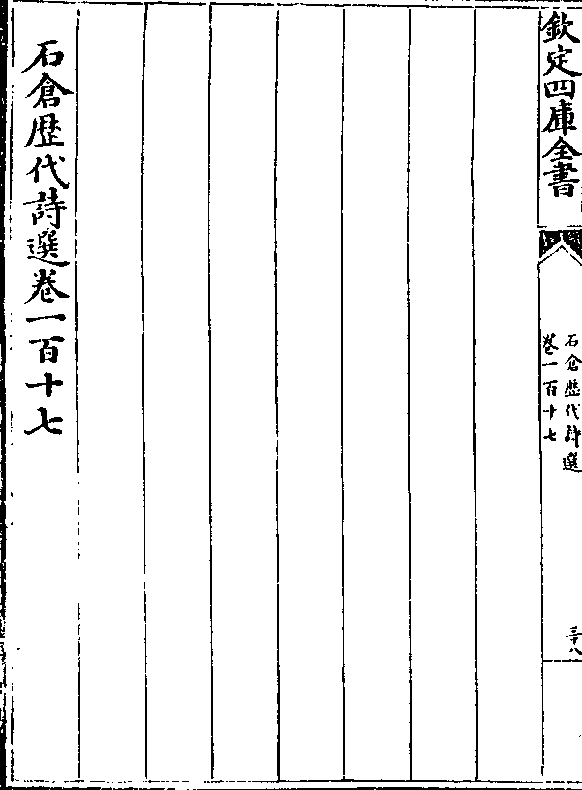 欽定四庫全書
石倉歴代詩選
卷一百十七
三十八
石倉歴代詩選卷一百十七